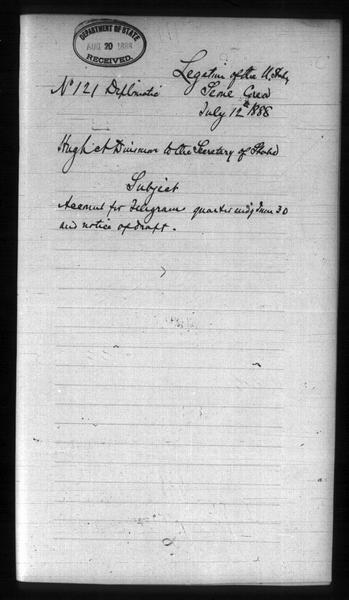 DEPARTMENT OF STATE
AUG 20 1888
RECEIVED.
Legation of the U. States
No 121 Diplomatic
Seoul Corea
July 12th 1888
Hugh A Dinsmore to the Secretary of State
Subject
Account for Telegrams quarter end'g June 30
and notice of draft.